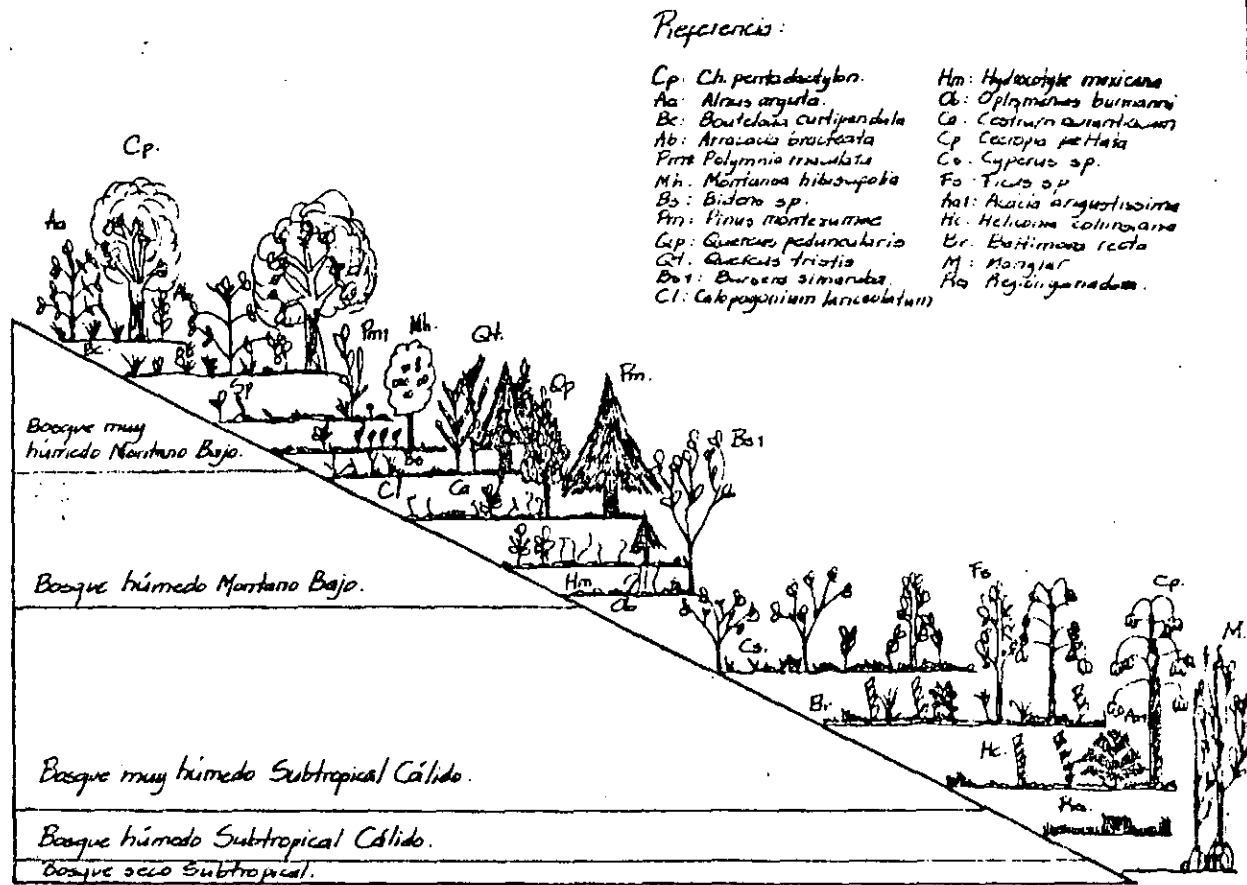 Referencia:
Cp. Ch. pentadactylon.
Aa: Alnus arguta.
Bc: Bouteloua curtipendula
Ab: Arracacia bracteata
Pm1 Polymnia maculata
Mh. Montanoa hibiscifolia
Bs: Bidens sp.
Pm: Pinus montezumae
Qp: Quercus peduncularis
Qt. Quercus tristis
Bs1: Bursera simaruba.
Cl: Calopogonium lanceolatum
Hm: Hydrocotyle mexicana
Ob: Oplismenus burmanni
Ca: Cestrum aurantiacum
Cp Cecropia peltata
Cs. Cyperus sp.
Fs: Ficus sp
Aa1: Acacia angustissima
Hc: Heliconia collinsiana
Br. Baltimora recta
M: Manglar
Cp.
Aa
Bc
Sp
Pm1
Mh.
Qt.
Qp
Pm.
Bs1
Cl
Ca
Hm
Ob
Cs.
Fs
Cp.
M.
Br
Hc.
Bosque muy
húmedo Montano Bajo.
Bosque húmedo Montano Bajo.
Bosque muy húmedo Subtropical Cálido.
Bosque húmedo Subtropical Cálido.
Bosque seco Subtropical.